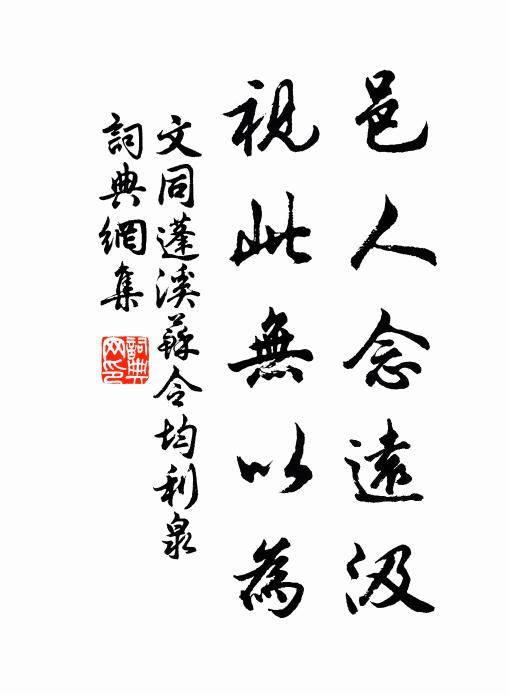 邑人念遠汲
視此無以為
文同蓬溪蘇令均利泉
詞典網集
詞典網印